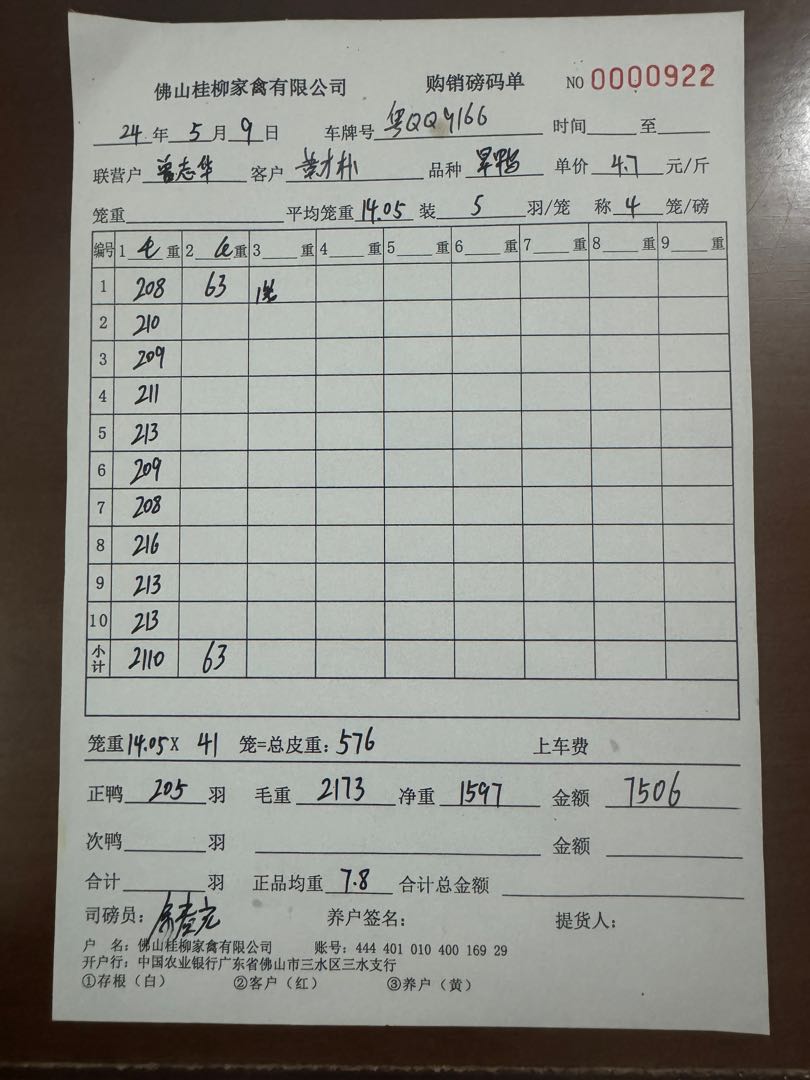 佛山桂柳家禽有限公司 购销磅码单 NO 0000922
24 年 5 月 9 日 车牌号 粤QQY166 时间 至
联营户 曾志华 客户 品种 旱鸭 单价 4.7 元/斤
笼重 平均笼重 14.05 装 5 羽/笼 称 4 笼/磅
编号 1 毛 重 2 毛 重 3 重 4 重 5 重 6 重 7 重 8 重 9 重
1 208 63
2 210
3 209
4 211
5 213
6 209
7 208
8 216
9 213
10 213
小计 2110 63
笼重 14.05X 41 笼=总皮重: 576 上车费
正鸭 205 羽 毛重 2173 净重 1597 金额 7506
次鸭 羽 金额
合计 羽 正品均重 7.8 合计总金额
司磅员: 养户签名: 提货人:
户 名: 佛山桂柳家禽有限公司 账号: 444 401 010 400 169 29
开户行: 中国农业银行广东省佛山市三水区三水支行
①存根(白) ②客户(红) ③养户(黄)